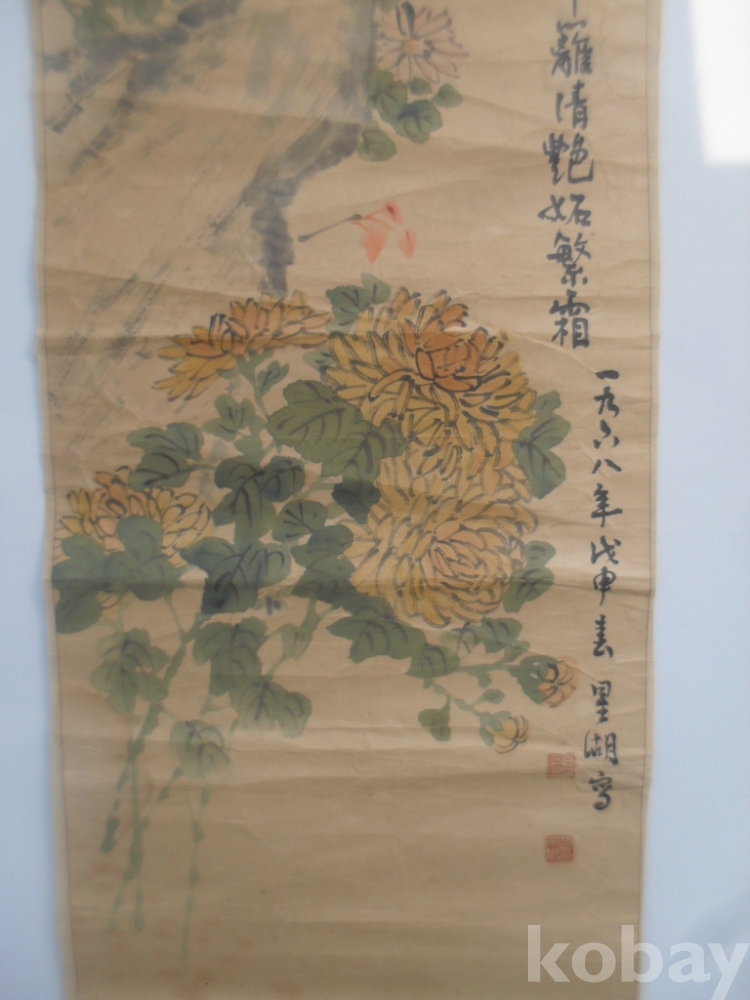 籬清艷妬繁霜
一九六八年戊申春星湖寫
kobay